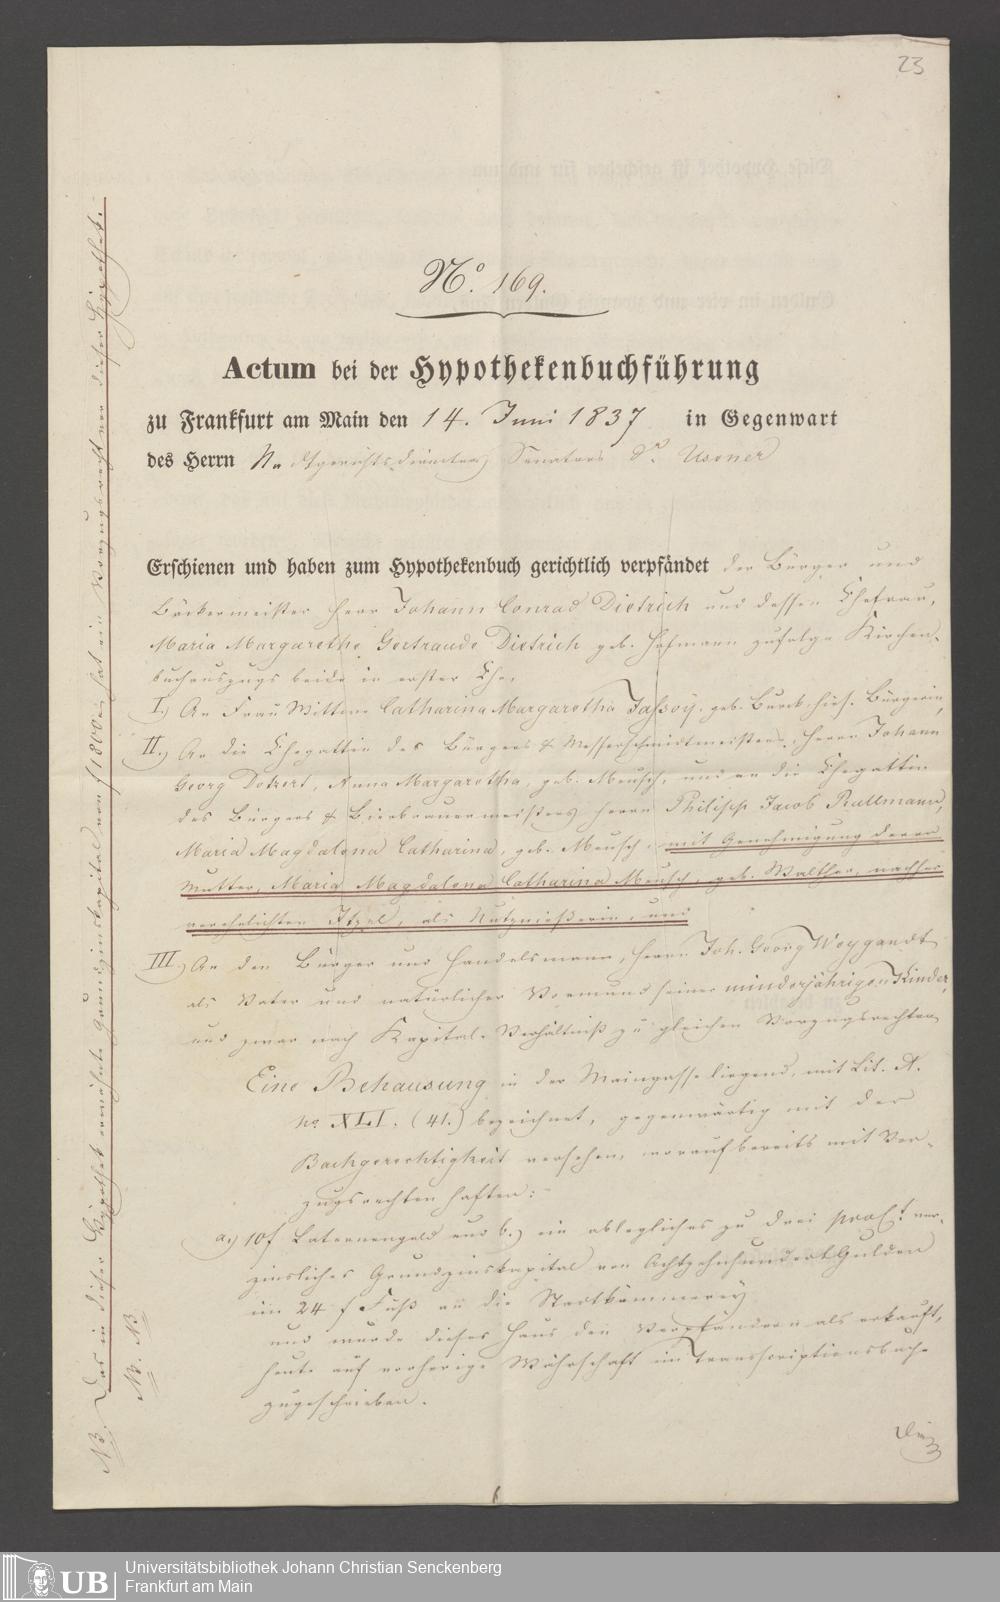 23
No. 169.
Actum bei der Hypothekenbuchführung
zu Frankfurt am Main den 14. Juni 1837 in Gegenwart
des Herrn Stadtgerichts-Directors, Senators Dr. Usener
Erschienen und haben zum Hypothekenbuch gerichtlich verpfändet der Bürger und
Bäckermeister Herr Johann Conrad Dietrich und dessen Ehefrau,
Maria Margaretha Gertraude Dietrich geb. Hofmann zufolge Kirchen-
buchauszugs beide in erster Ehe,
I.) An Frau Wittwe Catharina Margaretha Jassoÿ, geb. Burck, hies. Bürgerin,
II.) An die Ehegattin des Bürgers & Messerschmidtmeisters, Herrn Johann
Georg Dotzert, Anna Margaretha, geb. Meusch, und an die Ehegattin
des Bürgers & Bierbrauermeisters Herrn Philipp Jacob Rullmann,
Maria Magdalena Catharina, geb. Meusch, mit Genehmigung deren
Mutter, Maria Magdalena Catharina Meusch, geb. Walther, nachher
verehelichten Itzel, als Nutznießerin, und
III.) An den Bürger und Handelsmann, Herrn Joh. Georg Weygandt
als Vater und natürlicher Vormund seiner minderjährigen Kinder,
und zwar nach Kapital-Verhältniß zu gleichen Vorzugsrechten
Eine Behausung in der Maingasse liegend, mit Lit. A.
No. XLI. (41.) bezeichnet, gegenwärtig mit der
Backgerechtigkeit versehen, worauf bereits mit Vor-
zugsrechten haften:
a.) 10f Laternengeld und b.) ein ablegliches zu drei proCt. ver-
zinsliches Grundzinskapital von Achtzehnhundert Gulden
im 24 f Fuß an die Stadtkämmerey
und wurde dieses Haus den Verpfändern als erkauft,
heute auf vorherige Währschaft im Transscriptionsbuch
zugeschrieben.
NB. Das in dieser Hypothek erwähnte Grundzinskapital von f 1800 hat ein Vorzugsrecht vor dieser Hypothek.
NB. NB
UB
Universitätsbibliothek Johann Christian Senckenberg
Frankfurt am Main